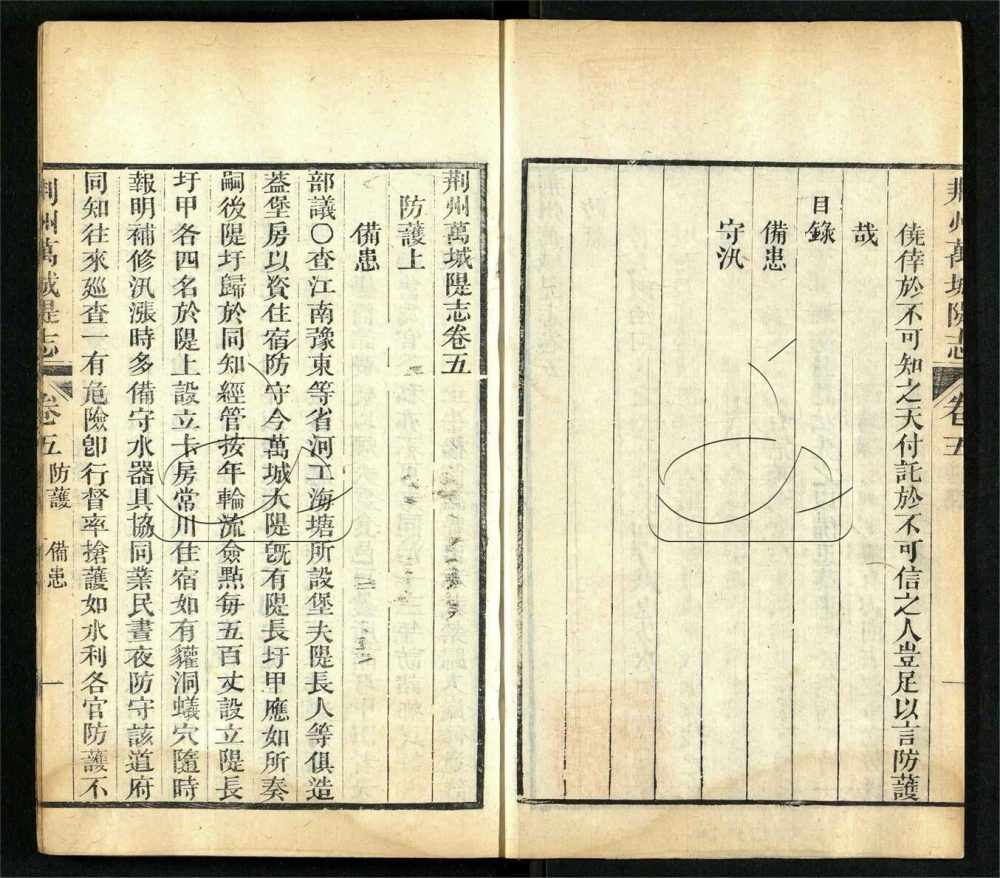 荆州萬城隄志
卷五
僥倖於不可知之天付託於不可信之人豈足以言防護
哉
目錄
備患
守汛
荆州萬城隄志卷五
防護上
備患
部議〇查江南豫東等省河工海塘所設堡夫隄長人等俱造
蓋堡房以資住宿防守今萬城大隄旣有隄長圩甲應如所奏
嗣後隄圩歸於同知經管按年輪流僉點每五百丈設立隄長
圩甲各四名於隄上設立卡房常川住宿如有獾洞蟻穴隨時
報明補修汛漲時多備守水器具協同業民晝夜防守該道府
同知往來廵查一有危險卽行督率搶護如水利各官防護不
荆州萬城隄志
卷五
防護
備患
一